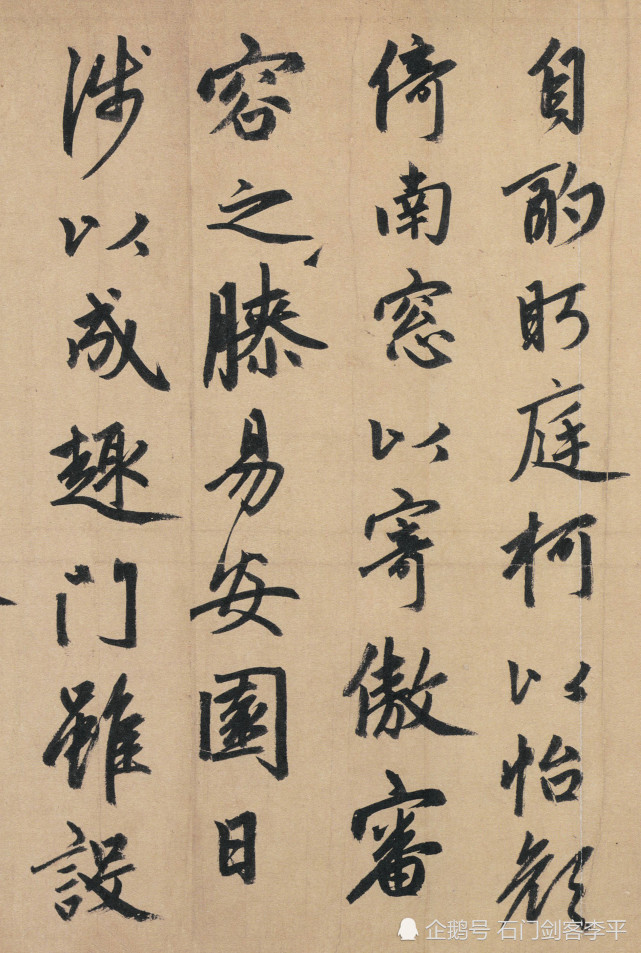 自酌眄庭柯以怡顔
倚南窓以寄傲審
容之膝易安園日
渉以成趣門雖設
企鹅号 石门剑客李平